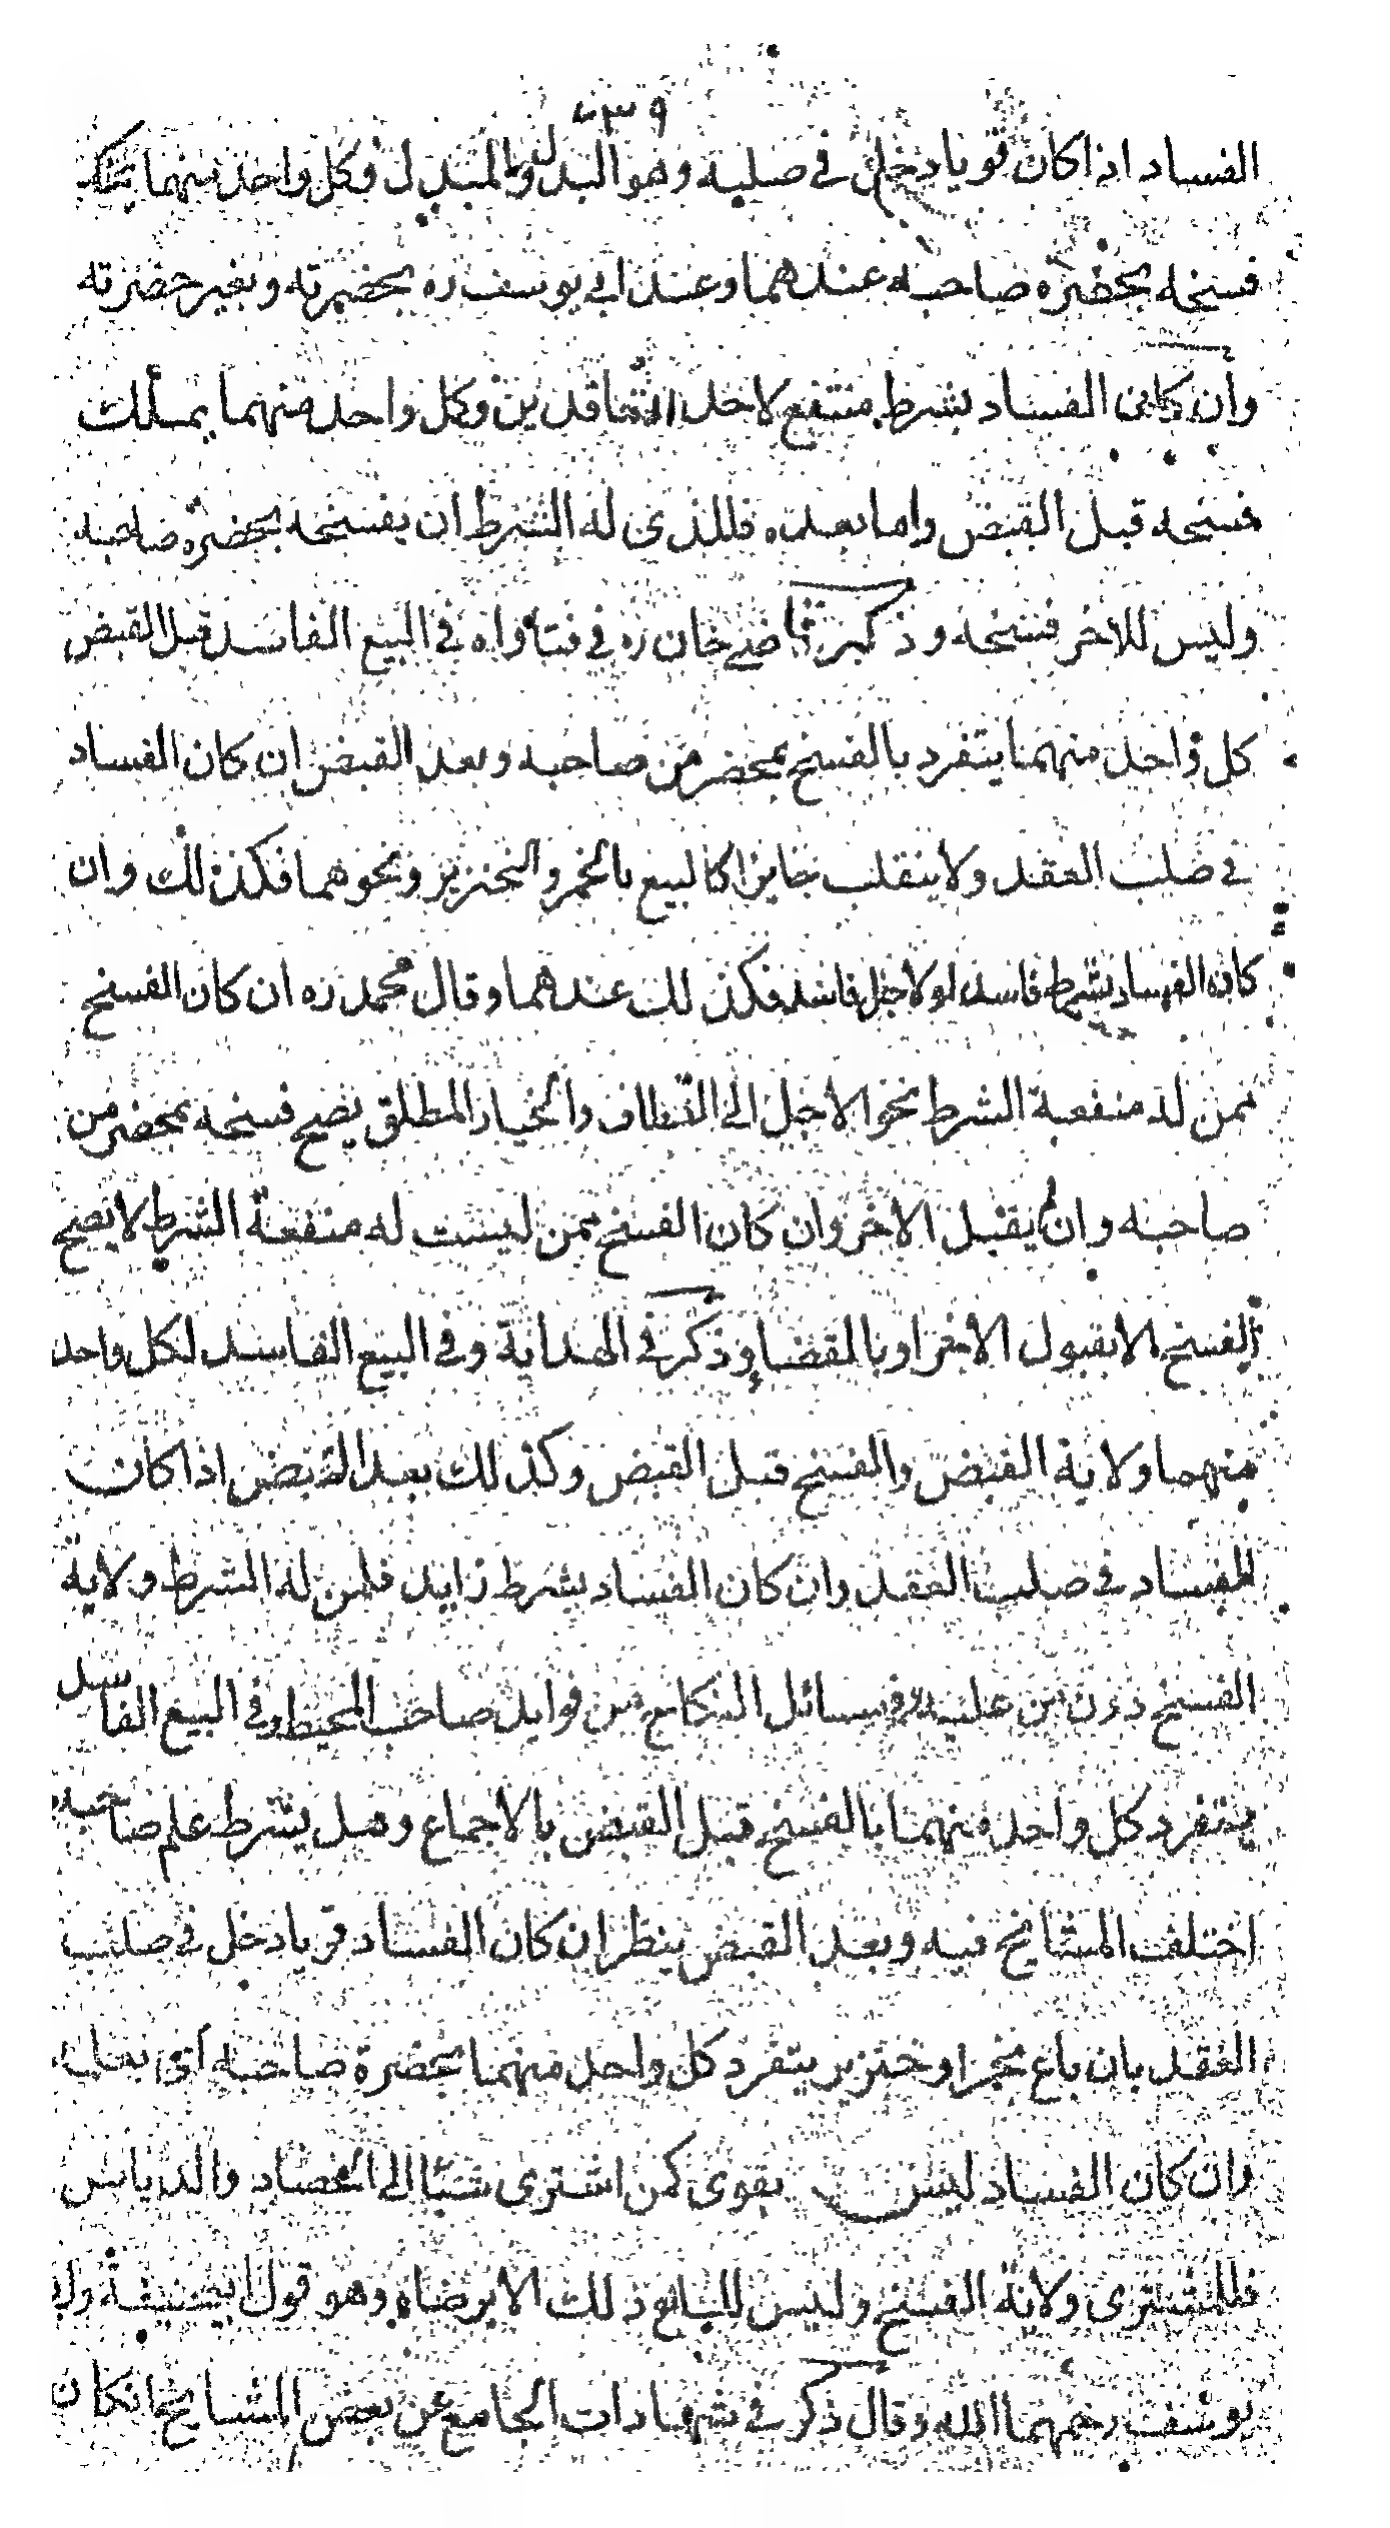 ٢٣٩
الفساد اذا كان قويا دخل في صلبه وهو البدل والمبدل وكل واحد منهما يملك
فسخه بحضرة صاحبه عندهما وعند ابي يوسف ره بحضرته وبغير حضرته
وان كان الفساد بشرط منتفع لاحد المتعاقدين وكل واحد منهما يملك
فسخه قبل القبض واما بعده فللذى له الشرط ان يفسخه بحضرة صاحبه
وليس للاخر فسخه وذكر قاضي خان ره في فتاواه في البيع الفاسد قبل القبض
كل واحد منهما يتفرد بالفسخ بمحضر من صاحبه وبعد القبض ان كان الفساد
في صلب العقد ولا ينقلب جايزا كالبيع بالخمر والخنزير ونحوهما فكذلك وان
كان الفساد بشرط فاسد او لاجل فاسد فكذلك عندهما وقال محمد ره ان كان الفسخ
ممن له منفعة الشرط نحو الاجل الى القطاف والخيار المطلق يصح فسخه بمحضر من
صاحبه وان لم يقبل الاخر وان كان الفسخ ممن ليست له منفعة الشرط لا يصح
الفسخ الا بقبول الاخر او بالقضاء وذكر في الهداية وفي البيع الفاسد لكل واحد
منهما ولاية القبض والفسخ قبل القبض وكذلك بعد القبض اذا كان
الفساد في صلب العقد وان كان الفساد بشرط زايد فلمن له الشرط ولاية
الفسخ دون من عليه وفي مسائل النكاح من فوايد صاحب المحيط وفي البيع الفاسد
يتفرد كل واحد منهما بالفسخ قبل القبض بالاجماع وهل يشترط علم صاحبه
اختلف المشائخ فيه وبعد القبض ينظر ان كان الفساد قويا دخل في صلب
العقد بان باع بخمر او خنزير يتفرد كل واحد منهما بحضرة صاحبه اى بعلمه
وان كان الفساد ليس بقوى كمن اشترى شيئا الى الحصاد والدياس
فللمشترى ولاية الفسخ وليس للبايع ذلك الا برضاه وهو قول ابيحنيفة وابي
يوسف رحمهما الله وقال ذكر في شهادات الجامع عن بعض المشايخ انكان